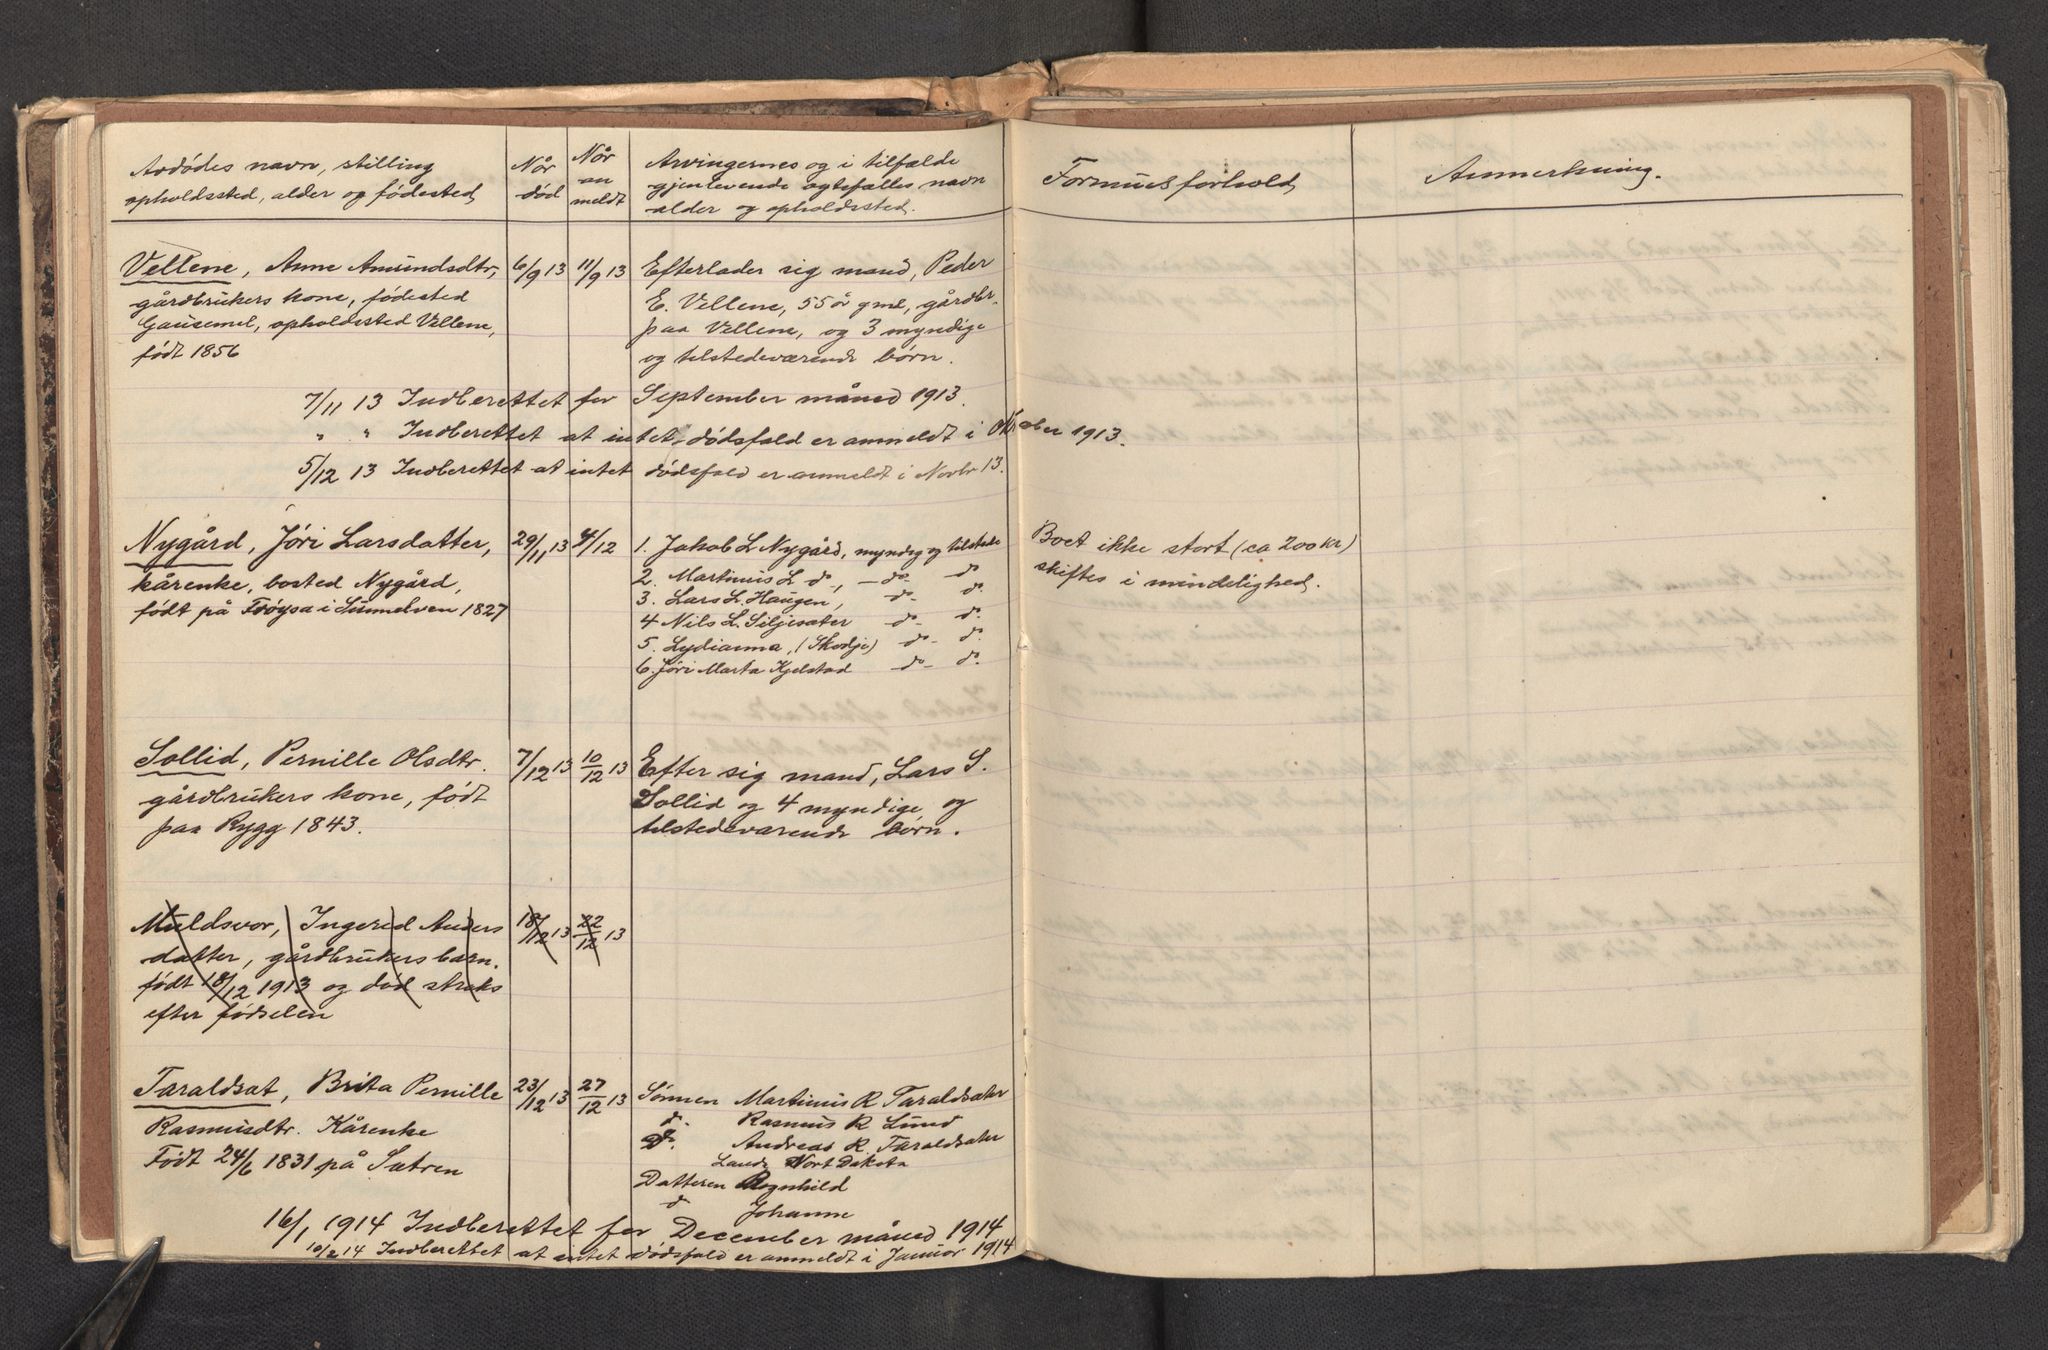 Avdødes navn, stilling
opholdssted, alder og fødested
Når
død
Når
an
meldt
Arvingernes og i tilfælde
gjenlevende egtefælles navn
alder og opholdssted.
Formuesforhold
Anmerkning.
Vellene, Anne Amundsdtr, 6/9 13 11/9 13 Efterlader sig mand, Peder
gårdbrukers kone, fødested E. Vellene, 55 år gml, gårdbr.
Gausemel, opholdssted Vellene, paa Vellene, og 3 myndige
født 1856 og tilstedeværende børn.
7/11 13 Indberettet for September måned 1913.
" " Indberettet at intet dødsfald er anmeldt i Oktober 1913.
5/12 13 Indberettet at intet dødsfald er anmeldt i Novbr 13.
Nygård, Jøri Larsdatter, 29/11 13 4/12 1. Jakob L Nygård, myndig og tilstede Boet ikke stort (ca 200 kr)
kårenke, bosted Nygård, 2. Martinus L do, - do- do skiftes i mindelighed.
født på Frøysa i Sunnelven 1827 3. Lars L. Haugen, do- do.
4 Nils L. Siljesæter do- do.
5. Lydianna, (Skodje) do- do.
6. Jøri Marta Kjelstad do- do.
Sollid, Pernille Olsdtr. 7/12 13 10/12 13 Efter sig mand, Lars S.
gårdbrukers kone, født Sollid og 4 myndige og
paa Rygg 1843. tilstedeværende børn.
Muldsvor, Ingerid Anders 18/12 13 22/12 13
datter, gårdbrukers barn.
født 18/12 1913 og død straks
efter fødselen
Taraldsæt, Brita Pernille 23/12 13 27/12 13 Sønnen Martinus R Taraldsæter
Rasmusdtr. Kårenke do. Rasmus R Lund
Født 24/6 1831 på Sætren do. Andreas R. Taraldsæter
Nort Dakota
Datteren Ragnhild
do Johanne
16/1 1914 Indberettet for December måned 1914
10/2 14 Indberettet at intet dødsfald er anmeldt i Januar 1914